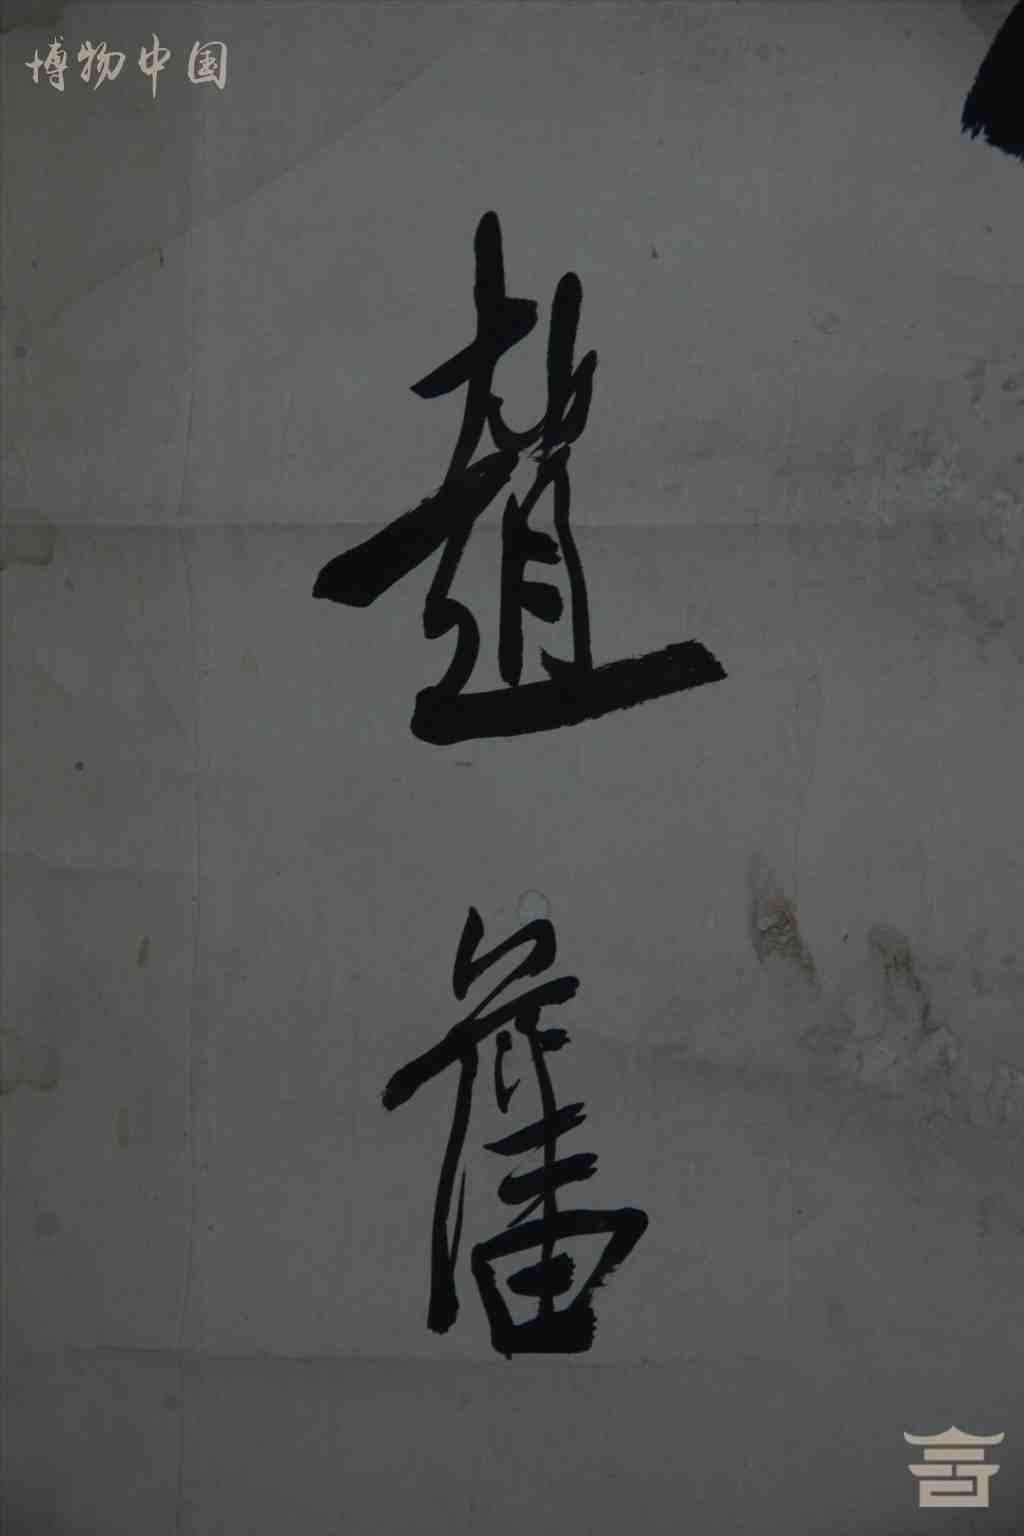 博物中国
趙
藩